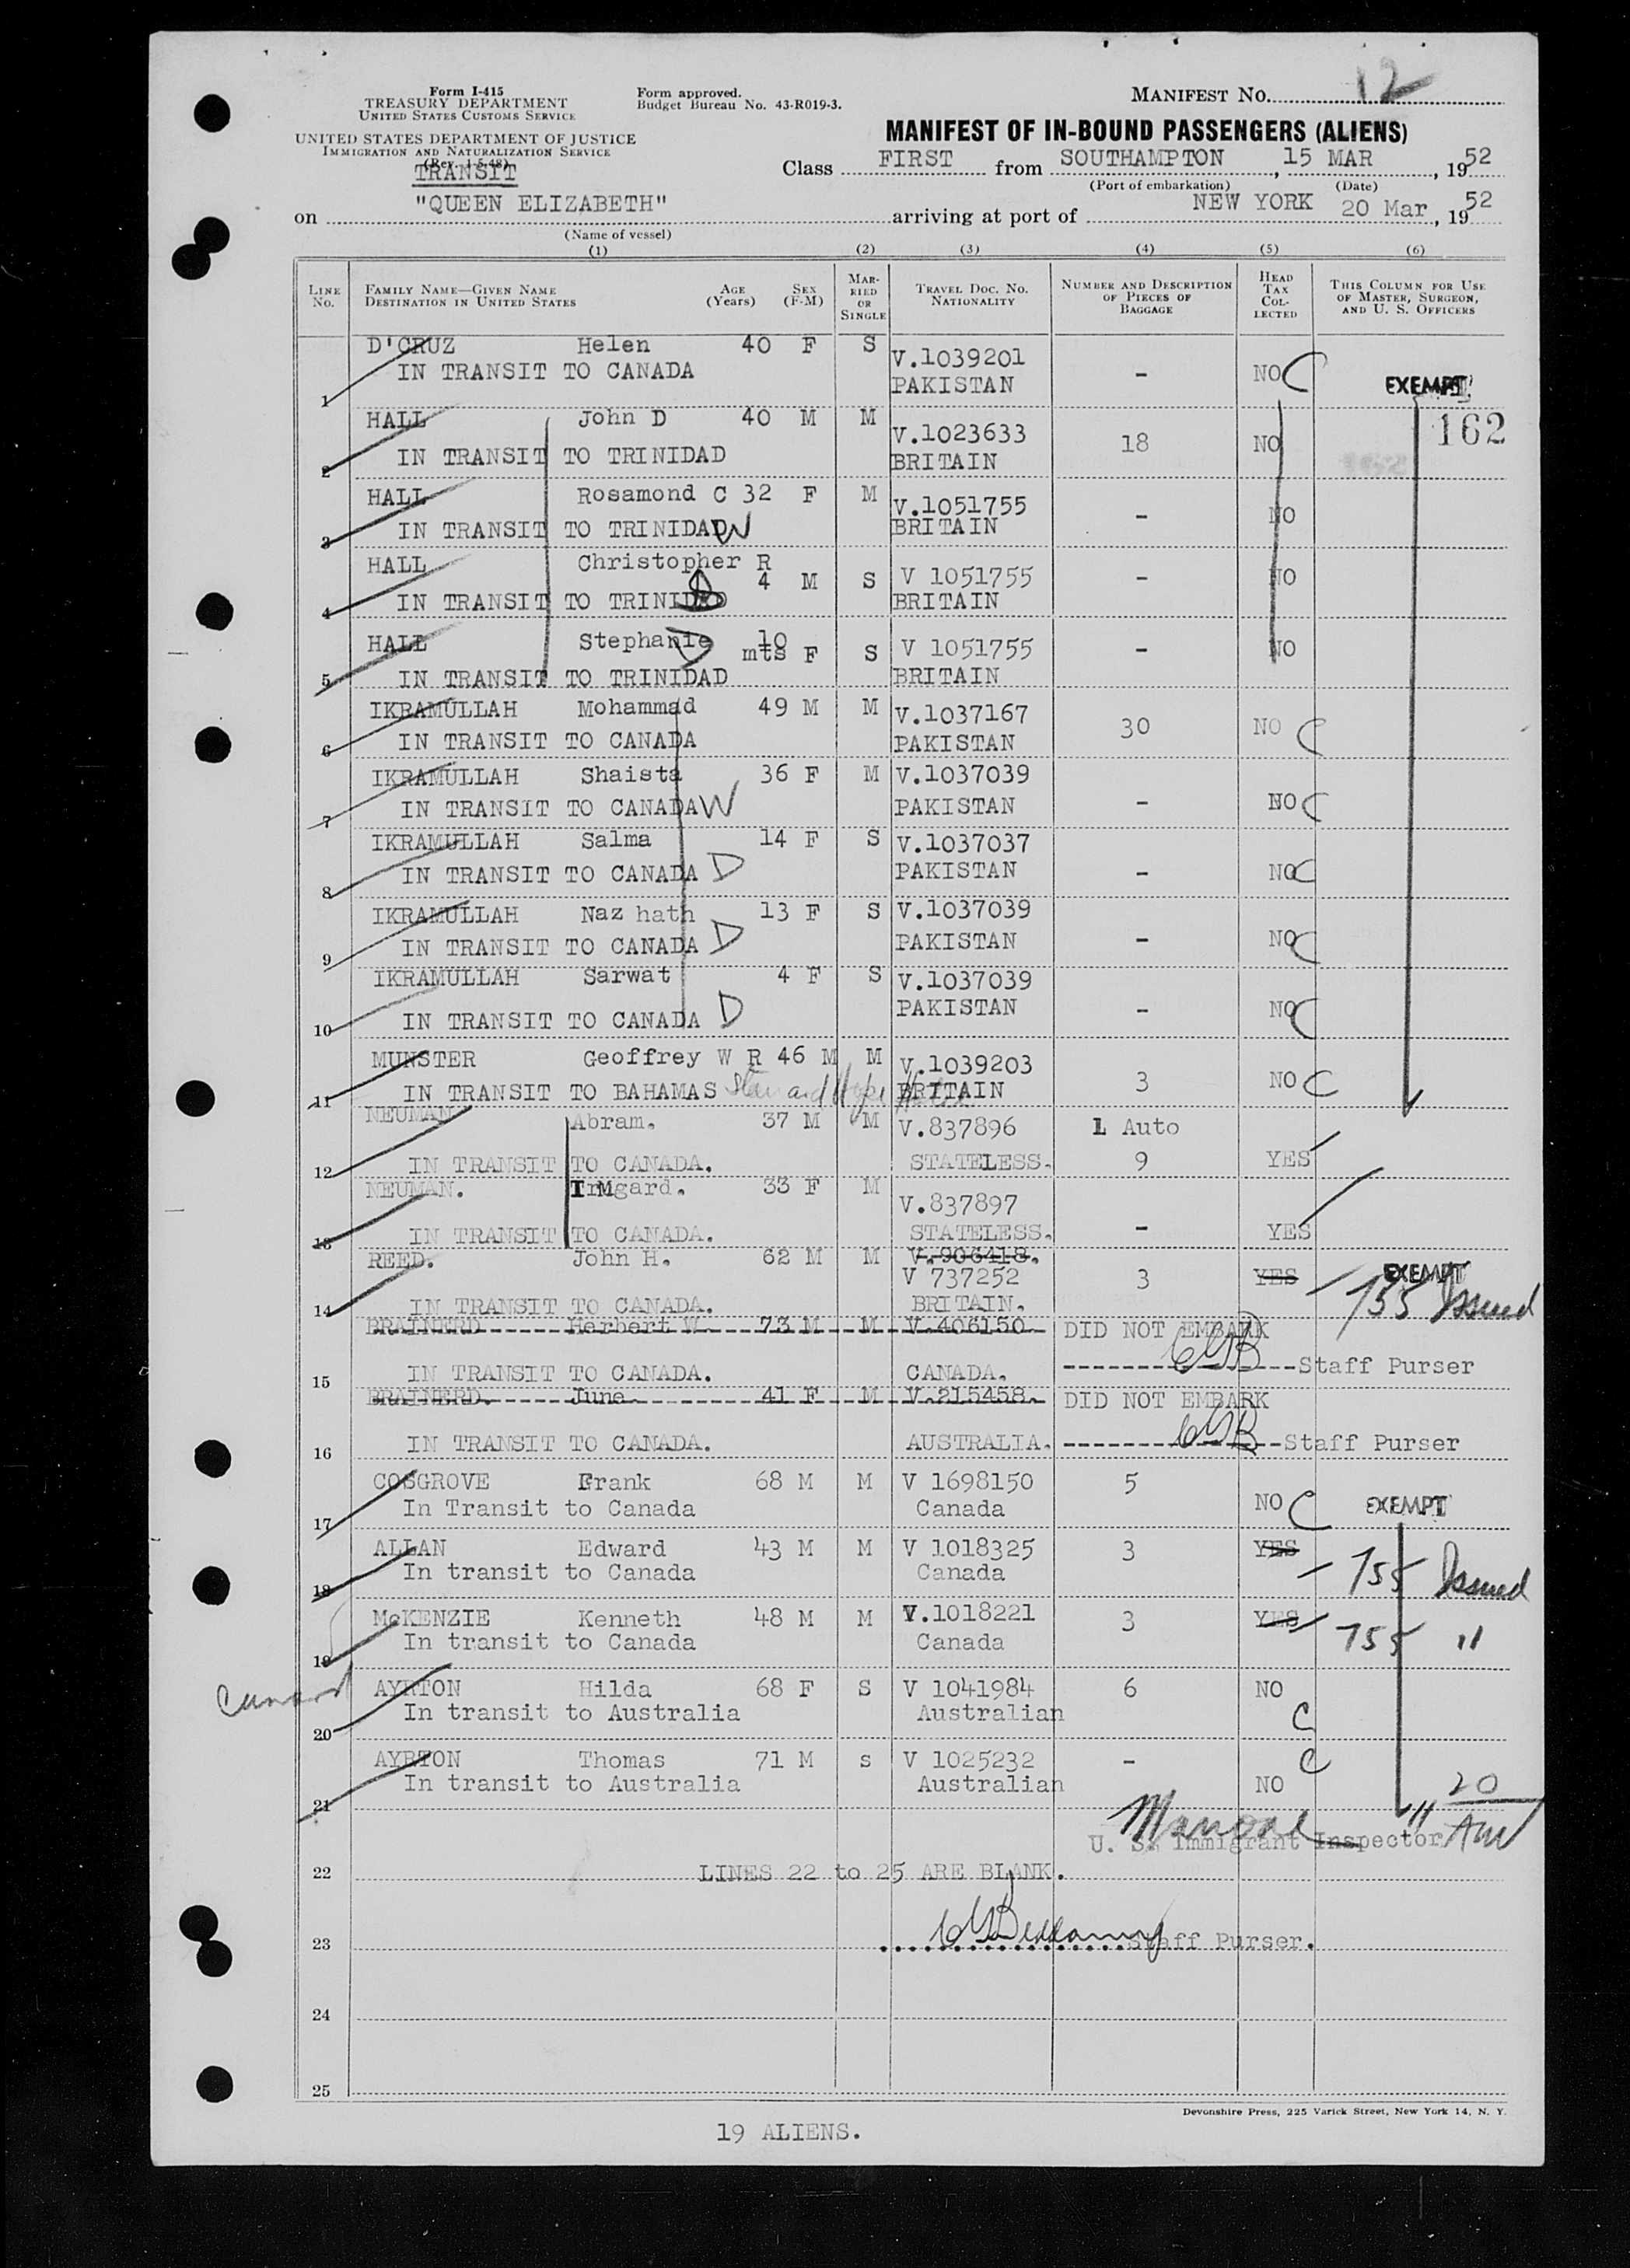 Form I-415
TREASURY DEPARTMENT
UNITED STATES CUSTOMS SERVICE
UNITED STATES DEPARTMENT OF JUSTICE
IMMIGRATION AND NATURALIZATION SERVICE
(Rev. 1-5-48)
TRANSIT
Form approved.
Budget Bureau No. 43-R019-3.
MANIFEST NO. 12
MANIFEST OF IN-BOUND PASSENGERS (ALIENS)
Class FIRST from SOUTHAMPTON, 15 MAR, 1952
(Port of embarkation) (Date)
on "QUEEN ELIZABETH" arriving at port of NEW YORK 20 Mar, 1952
(Name of vessel)
(1) (2) (3) (4) (5) (6)
LINE NO. FAMILY NAME—GIVEN NAME DESTINATION IN UNITED STATES AGE (Years) SEX (F-M) MARRIED OR SINGLE TRAVEL DOC. NO. NATIONALITY NUMBER AND DESCRIPTION OF PIECES OF BAGGAGE HEAD TAX COLLECTED THIS COLUMN FOR USE OF MASTER, SURGEON, AND U. S. OFFICERS
D'CRUZ Helen 40 F S V.1039201
1 IN TRANSIT TO CANADA PAKISTAN - NO C EXEMPT
HALL John D 40 M M V.1023633 18 NO 162
2 IN TRANSIT TO TRINIDAD BRITAIN
HALL Rosamond C 32 F M V.1051755 - NO
3 IN TRANSIT TO TRINIDAD W BRITAIN
HALL Christopher R
4 M S V 1051755 - NO
4 IN TRANSIT TO TRINIDAD BRITAIN
HALL Stephanie 10 mts F S V 1051755 - NO
5 IN TRANSIT TO TRINIDAD BRITAIN
IKRAMULLAH Mohammad 49 M M V.1037167 30 NO C
6 IN TRANSIT TO CANADA PAKISTAN
IKRAMULLAH Shaista 36 F M V.1037039
7 IN TRANSIT TO CANADA W PAKISTAN - NO C
IKRAMULLAH Salma 14 F S V.1037037
8 IN TRANSIT TO CANADA D PAKISTAN - NO C
IKRAMULLAH Naz hath 13 F S V.1037039
9 IN TRANSIT TO CANADA D PAKISTAN - NO C
IKRAMULLAH Sarwat 4 F S V.1037039
10 IN TRANSIT TO CANADA D PAKISTAN - NO C
MUNSTER Geoffrey W R 46 M M V.1039203 3 NO C
11 IN TRANSIT TO BAHAMAS BRITAIN
NEUMAN Abram. 37 M M V.837896 1 Auto
12 IN TRANSIT TO CANADA. STATELESS. 9 YES
NEUMAN. IrMgard. 33 F M V.837897
13 IN TRANSIT TO CANADA. STATELESS. - YES
REED. John H. 62 M M V.906418.
V 737252 3 YES EXEMPT 755 Issued
14 IN TRANSIT TO CANADA. BRITAIN.
BRAINERD Herbert W. 73 M M V.406150 DID NOT EMBARK
15 IN TRANSIT TO CANADA. CANADA. Staff Purser
BRAINERD. June 41 F M V.215458. DID NOT EMBARK
16 IN TRANSIT TO CANADA. AUSTRALIA. Staff Purser
COSGROVE Frank 68 M M V 1698150 5
17 In Transit to Canada Canada NO C EXEMPT
ALLAN Edward 43 M M V 1018325 3 YES
18 In transit to Canada Canada 755 Issued
McKENZIE Kenneth 48 M M V.1018221 3 YES
19 In transit to Canada Canada 755 "
Cunard AYRTON Hilda 68 F S V 1041984 6 NO
20 In transit to Australia Australian C
AYRTON Thomas 71 M s V 1025232 - C
21 In transit to Australia Australian NO 20
U. S. Immigrant Inspector
22 LINES 22 to 25 ARE BLANK.
23 Staff Purser.
24
25
Devonshire Press, 225 Varick Street, New York 14, N. Y.
19 ALIENS.